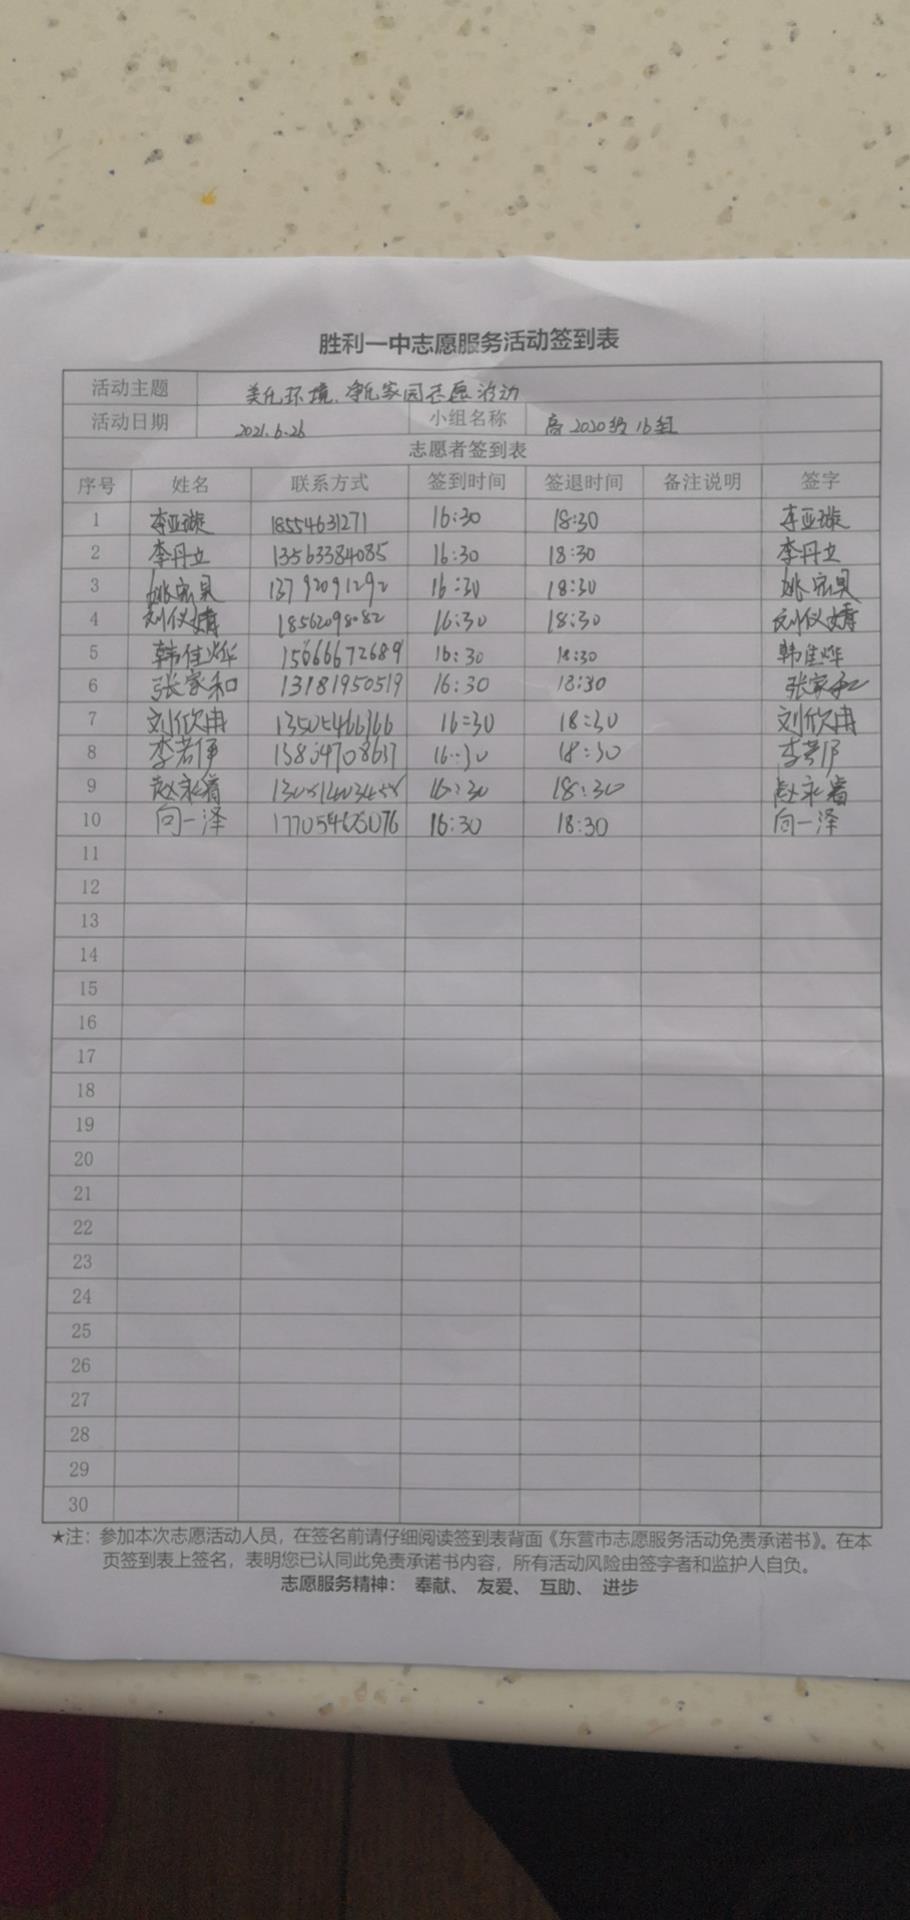 胜利一中志愿服务活动签到表
活动主题 美化环境、净化家园志愿活动
活动日期 2021.6.26 小组名称 高2020级16组
志愿者签到表
序号 姓名 联系方式 签到时间 签退时间 备注说明 签字
1 李亚璇 18554631271 16:30 18:30 李亚璇
2 李丹立 13563384085 16:30 18:30 李丹立
3 13792091292 16:30 18:30
4 刘仪婧 18562098082 16:30 18:30 刘仪婧
5 韩佳烨 15666672689 16:30 18:30 韩佳烨
6 张家和 13181950519 16:30 18:30 张家和
7 刘欣冉 13505466366 16:30 18:30 刘欣冉
8 李若伊 16:30 18:30 李若伊
9 赵永睿 16:30 18:30 赵永睿
10 向一泽 17705465076 16:30 18:30 向一泽
11
12
13
14
15
16
17
18
19
20
21
22
23
24
25
26
27
28
29
30
★注：参加本次志愿活动人员，在签名前请仔细阅读签到表背面《东营市志愿服务活动免责承诺书》。在本
页签到表上签名，表明您已认同此免责承诺书内容，所有活动风险由签字者和监护人自负。
志愿服务精神： 奉献、 友爱、 互助、 进步